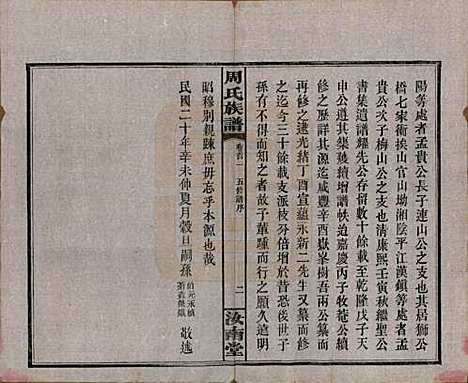 陽等處者孟貴公長子連山公之支也其居獅公
橋七家衝挨山官山坳湘陰平江漢鎮等處者孟
貴公次子梅山公之支也清康熙壬寅秋繼聖公
書集遺譜耀先公存留數十餘載至乾隆戊子天
申公道其柴殘續增譜帙迨嘉慶丙子牧菴公續
修之厯詳其源迄咸豐辛酉嶽峯樹吾兩公纂而
再修之逮光緒丁酉宜蘊永新二先生又纂而修
之迄今三十餘載支派枝分倍增於昔恐後世子
孫有不可知之者故子輩踵而行之願後久遠明
昭穆別親疎庶毋忘乎本源也哉
民國二十年辛未仲夏月穀旦嗣孫
敬述
周氏族譜
卷首一
五修譜序
二
汝南堂